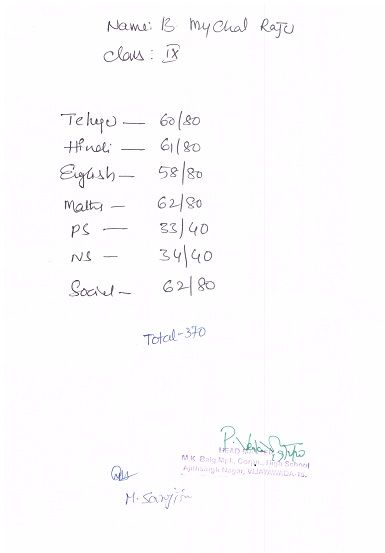 Name: B. Mychal Raju
Class: IX
Telugu — 60/80
Hindi — 61/80
English — 58/80
Maths — 62/80
PS — 33/40
NS — 34/40
Social — 62/80
Total-370
HEAD
M.K. Baig Mpl., Corpn., High School
Ajithsingh Nagar, VIJAYAWADA-15.
M. Sanjiv